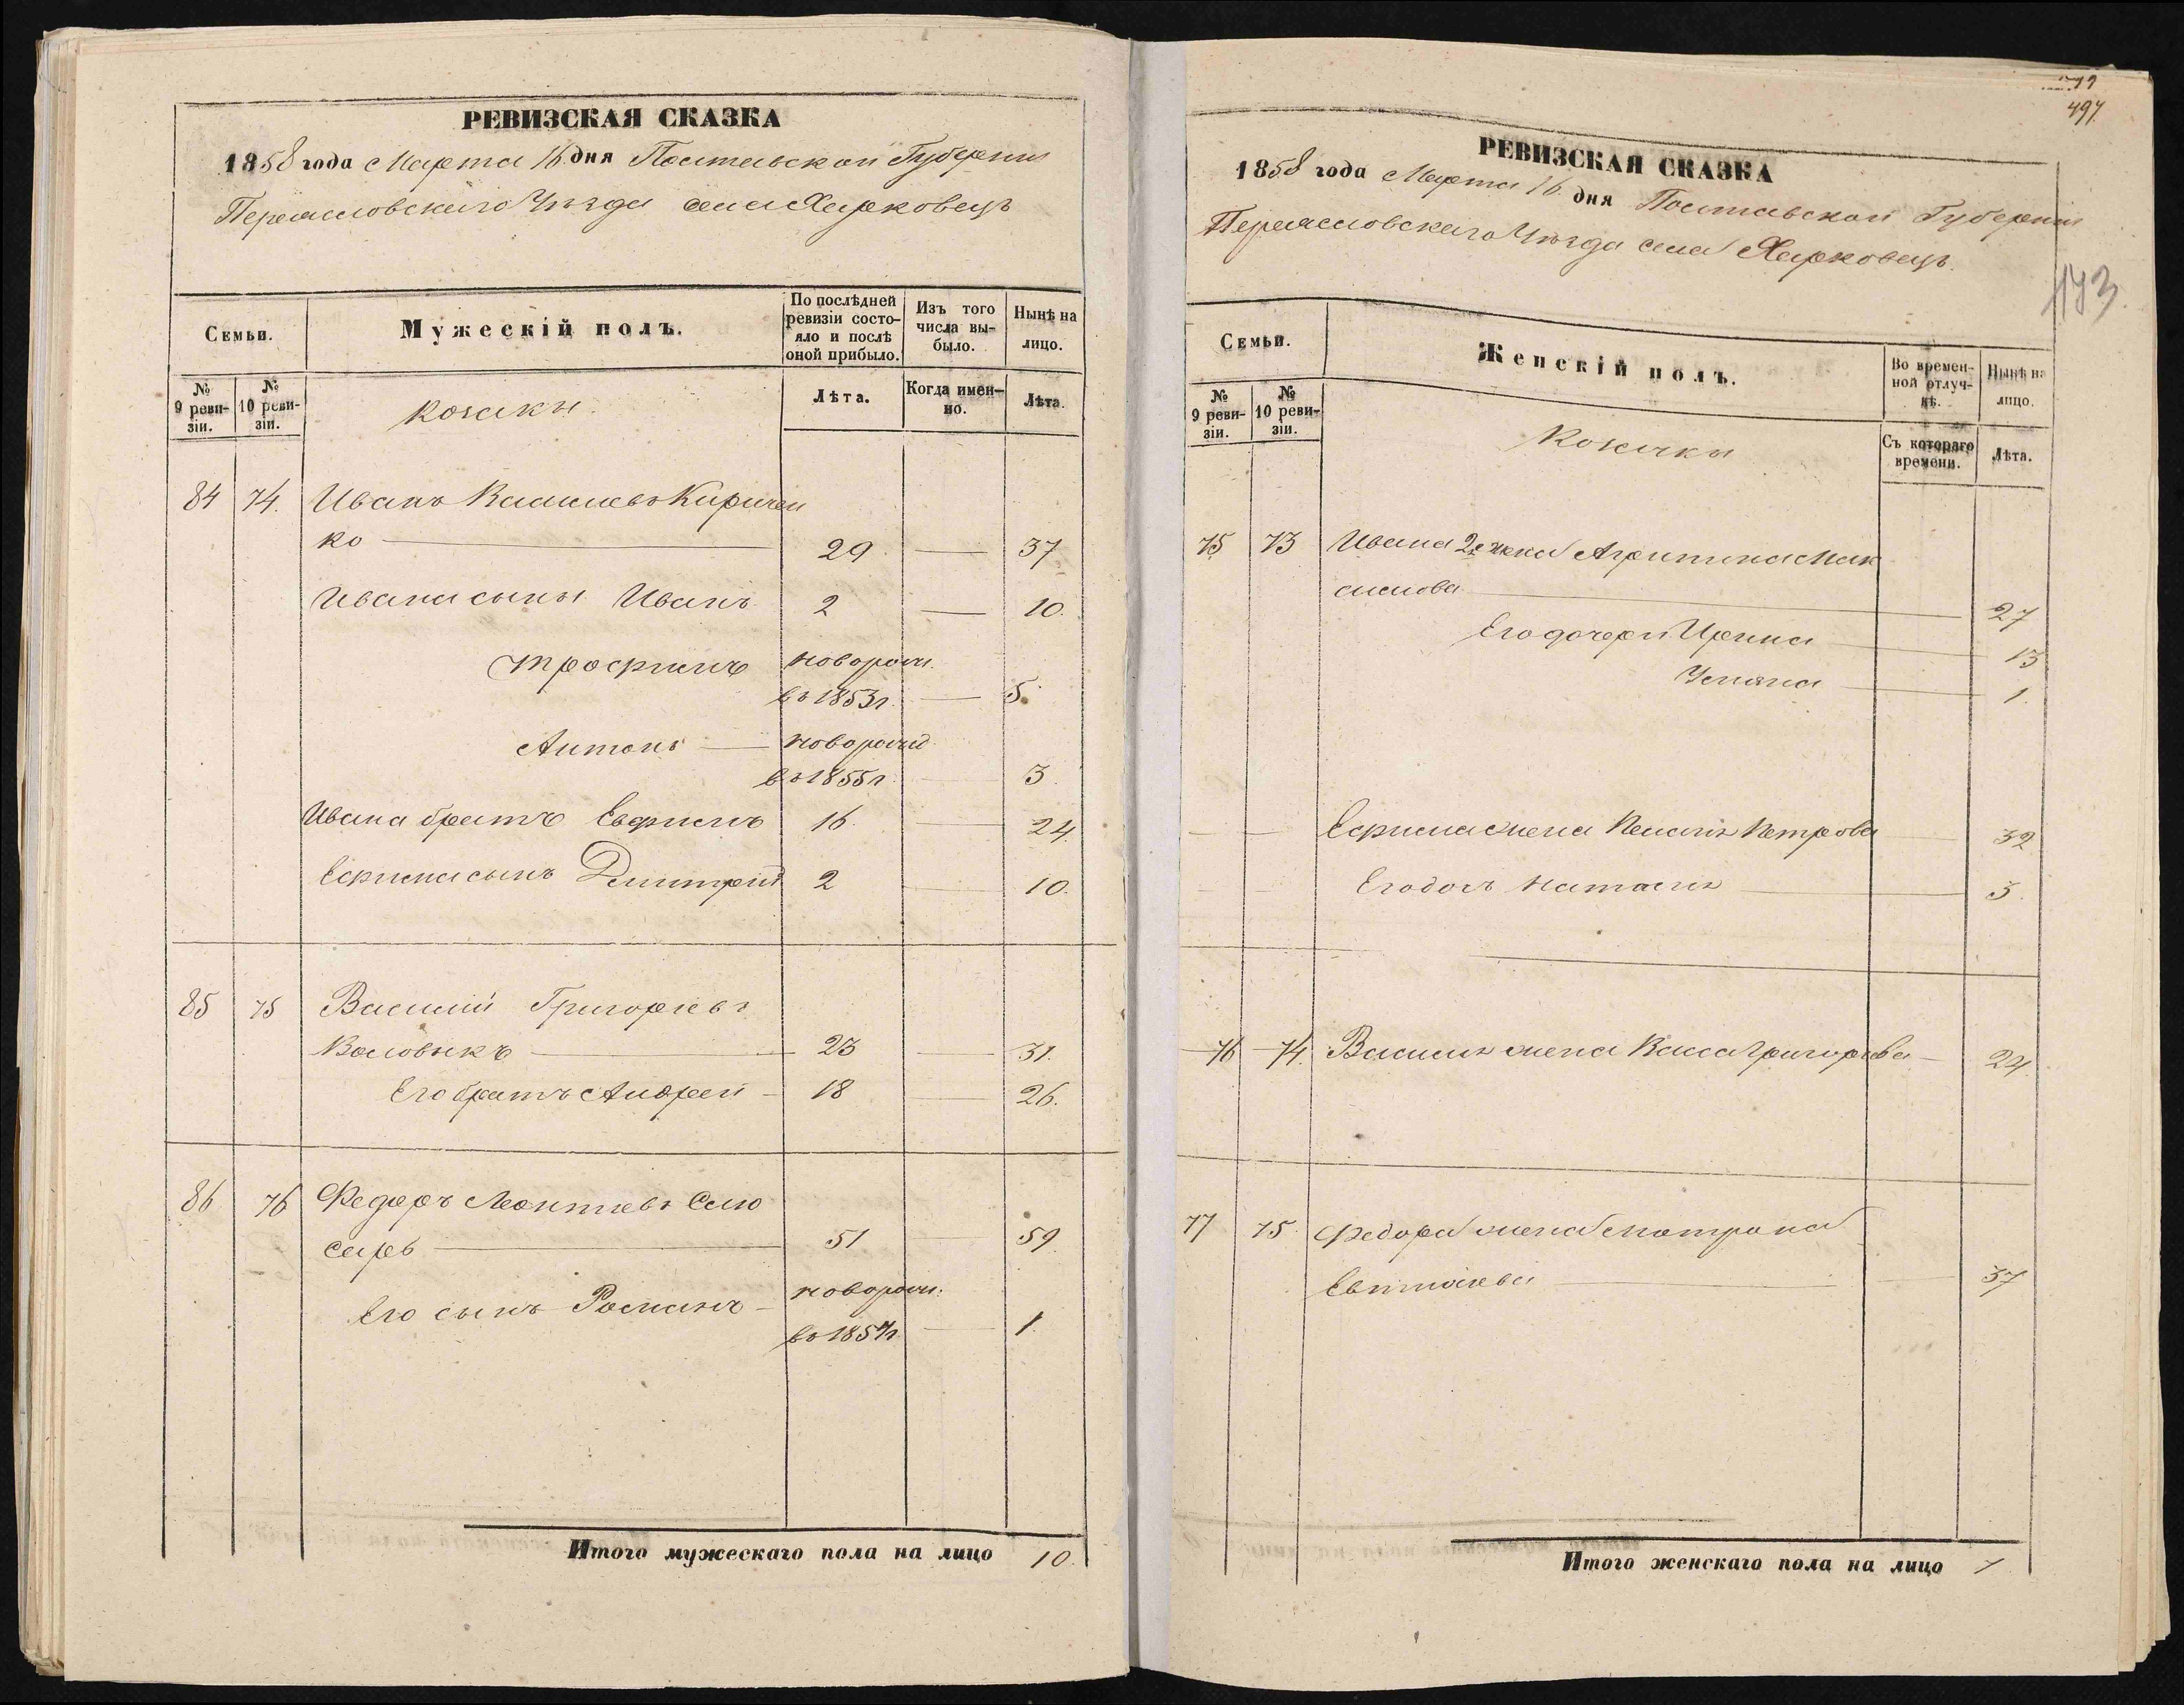 РЕВИЗСКАЯ СКАЗКА
1858 года Марта 16 дня Полтавской Губернии
Переяславского Уѣзда села Харковецъ
Семьи.
Мужескій полъ.
По послѣдней ревизіи состояло и послѣ оной прибыло.
Изъ того числа выбыло.
Нынѣ на лицо.
№ 9 ревизіи.
№ 10 ревизіи.
козаки.
Лѣта.
Когда именно.
Лѣта.
84 74. Иванъ Васильевъ Киричен
ко 29 37
Ивана сыны Иванъ 2 10.
Трофимъ новорож.
въ 1853 г. 5.
Антонъ новорожд
въ 1855 г. 3.
Ивана братъ Евфимъ 16 24.
Ефима сынъ Дмитрій 2 10.
85 75 Василій Григорьевъ
Воловикъ 23 31.
Его братъ Андрей 18 26.
86 76 Федоръ Леонтьевъ Слю
сарь 51 59.
Его сынъ Романъ новорож.
въ 1857 г. 1.
Итого мужескаго пола на лицо 10.
497
РЕВИЗСКАЯ СКАЗКА
1858 года Марта 16 дня Полтавской Губернии
Переяславского Уѣзда села Харковецъ.
173.
Семьи.
Женскій полъ.
Во временной отлучкѣ.
Нынѣ на лицо.
№ 9 ревизіи.
№ 10 ревизіи.
Козачки
Съ котораго времени.
Лѣта.
75 73 Ивана 2я жена Агрипина Мак
симова 27
Его дочери Ирина 13
Ульяна 1.
Ефима жена Пелагія Петрова 32
Его дочь Наталія 3.
76 74. Василія жена Васса Григорьева 24
77 75. Федора жена Матрона
37
Итого женскаго пола на лицо 7